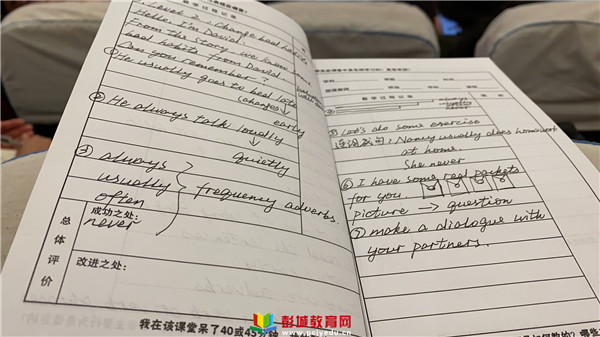 教 学 过 程 记 录
Level 2: Change bad
Hello I'm David.
From the story, we know some
bad habits from David.
Can you remember?
① He usually goes to bed late
(changes) early
② He always talk loudly
quietly
③ always
usually
often
never
frequency adverbs.
总体评价
成功之处:
改进之处:
我在该课堂呆了40或45分钟
教 学 过 程 记 录
always
usually
never
⑤ Let's do some exercise
连词成句: Nancy usually does homework
at home
She never
⑥ I have some red packets
for you.
picture → question
⑦ make a dialogue with
your partners.
彭城教育网
www.pcjyedu.cn